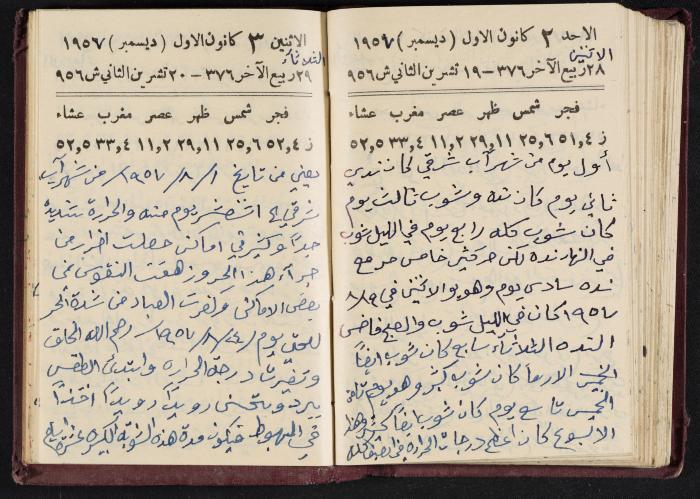 الاحد ٢ كانون الاول (ديسمبر) ١٩٥٦
الاثنين
٢٨ ربيع الآخر ٣٧٦ - ١٩ تشرين الثاني ش ٩٥٦
فجر شمس ظهر عصر مغرب عشاء
ز ٥١,٤ ٢٥,٦ ٢٩,١١ ١١,٢ ٣٣,٤ ٥٢,٥
أول يوم من شهر آب شرقي كان ندي
ثاني يوم كان نده وشوب ثالث يوم
كان شوب كله رابع يوم في الليل شوب
في النهار نده لكن حر كثير خامس حر مع
نده سادس يوم وهو يوم الاثنين في ٨/١٩
١٩٥٧ كان في الليل شوب والصبح
النده الثلاثاء سابع كان شوب ايضاً
الاربعا كان شوب كثير وهو يوم ثامن
الخميس تاسع يوم كان شوب ايضاً وهذا
الاسبوع كان اعظم درجات الحرارة في
الاثنين ٣ كانون الاول (ديسمبر) ١٩٥٦
الثلاثاء
٢٩ ربيع الآخر ٣٧٦ - ٢٠ تشرين الثاني ش ٩٥٦
فجر شمس ظهر عصر مغرب عشاء
ز ٥٢,٤ ٢٥,٦ ٢٩,١١ ١١,٢ ٣٣,٤ ٥٢,٥
يعني من تاريخ ١/٨/١٩٥٧ من شهر آب
شرقي الى اثنى عشر يوم منه والحرارة شديدة
جداً وكثير في اماكن حصلت اضرار من
جراء هذا الحر وزهقت النفوس من
بعض الاماكن وكفرت العباد من شدة الحر
للحق يوم ٢٤/٨/١٩٥٧ رحم الله الخلق
وتغيرت درجة الحرارة وابتدئ الطقس
يبرد ويتحسن رويداً رويداً آخذاً
في الهبوط فيكون مدة هذه الشوبة الكبيرة عشرة ايام